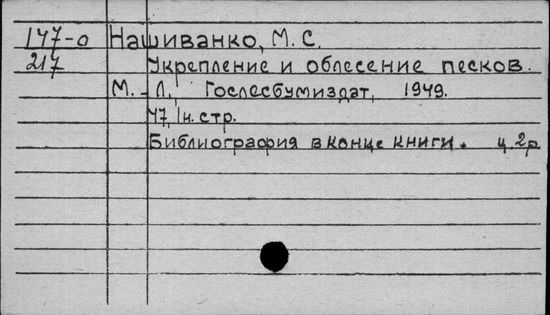 147-о Нашиванко, М. С.
217 Укрепление и облесение песков.
М.-Л., Гослесбумиздат, 1949.
47, 1н. стр.
Библиография в конце книги. ц. 2р.